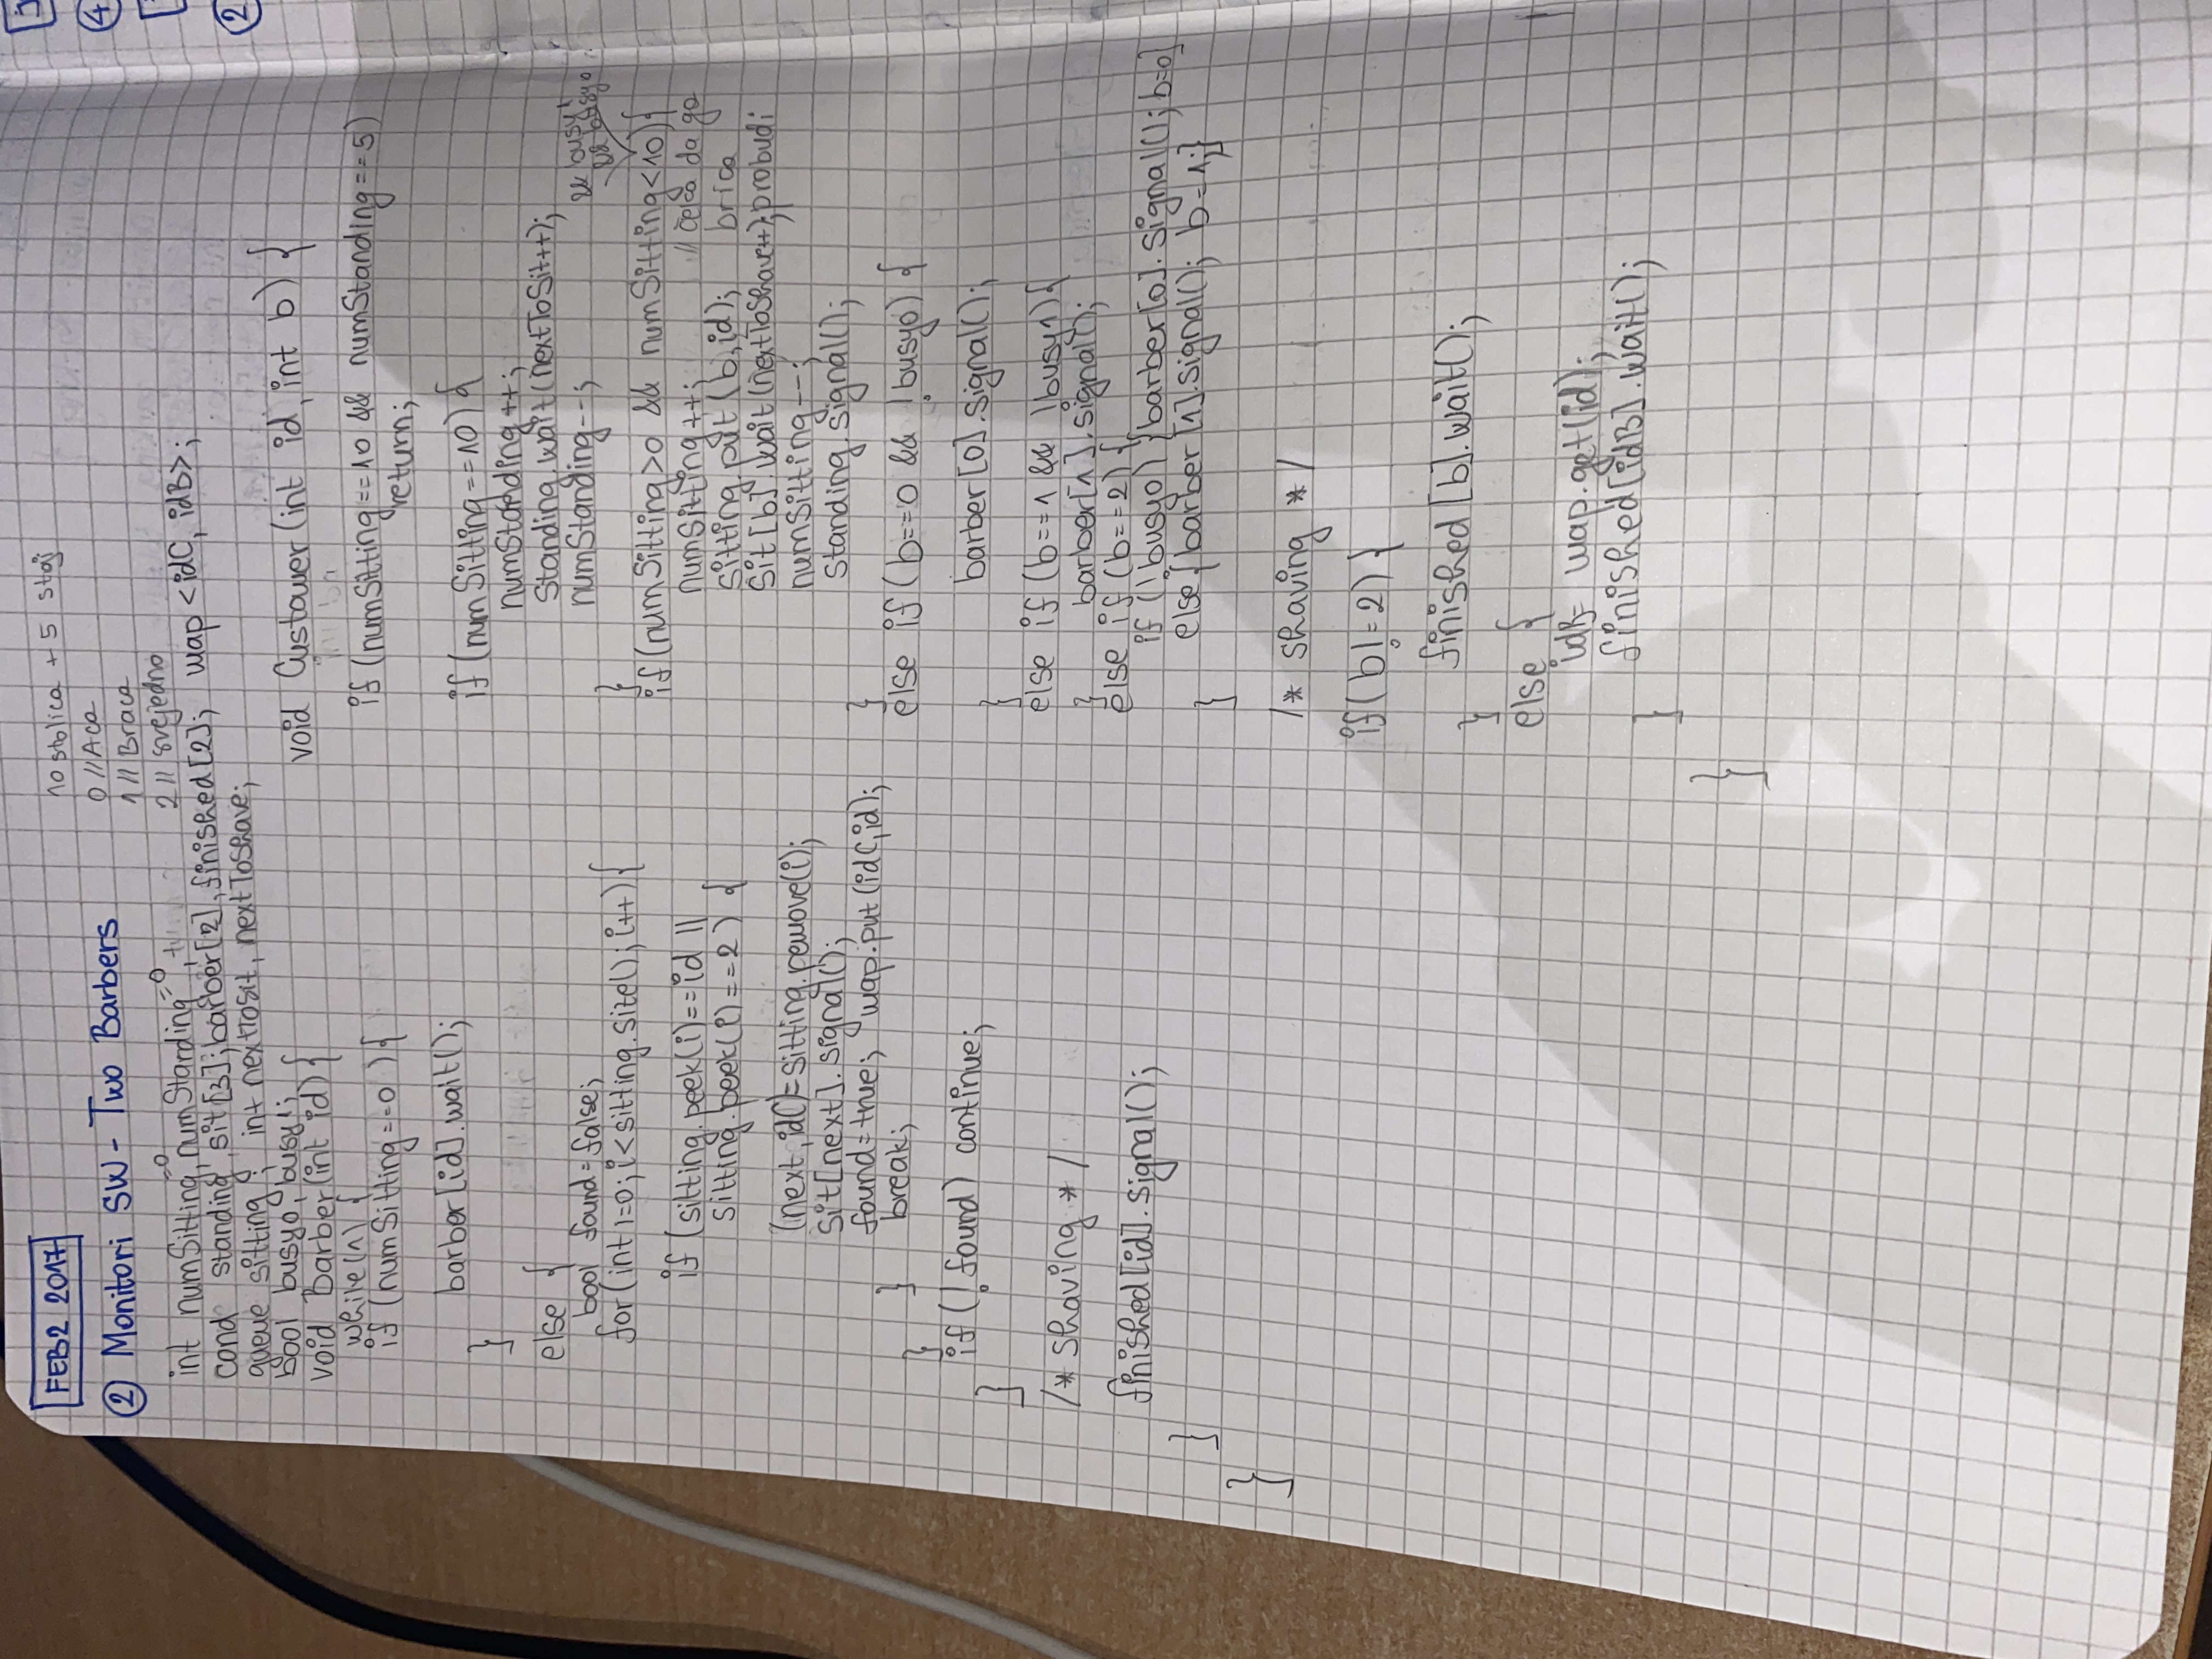 FEB2 2017
10 stolica + 5 stoj
0 // Aca
② Monitori SW - Two Barbers
1 // Braca
2 // svejedno
int numSitting=0, numStanding=0,
cond standing, sit[3]; barber[2], finished[2]; map <idC, idB>;
queue sitting; int nextToSit, nextToShave;
bool busy0, busy1;
void Barber(int id){
while(1) {
if (numSitting==0){
barber[id].wait();
}
else {
bool found=false;
for(int i=0; i<sitting.size(); i++){
if (sitting.peek(i)==id ||
sitting.peek(i)==2) {
(next, idC)=sitting.remove(i);
sit[next].signal();
found=true; map.put(idC,id);
} break;
}
if (!found) continue;
}
/* shaving */
finished[id].signal();
}
}
void Customer(int id, int b) {
if (numSitting==10 && numStanding==5)
return;
if (numSitting==10) {
numStanding++;
standing.wait(nextToSit++);
numStanding--;
}
&& busy1
&& busy0
if (numSitting>0 && numSitting<10){
numSitting++; // čeka da ga
sitting.put(b,id); brica
sit[b].wait(nextToShave++); probudi
numSitting--;
standing.signal();
}
else if (b==0 && !busy0) {
barber[0].signal();
}
else if (b==1 && !busy1){
} barber[1].signal();
else if (b==2) {
if (!busy0) {barber[0].signal(); b=0}
else {barber[1].signal(); b=1;}
}
/* shaving */
if (b!=2) {
finished[b].wait();
}
else {
idB= map.get(id);
finished[idB].wait();
}
}
④
②